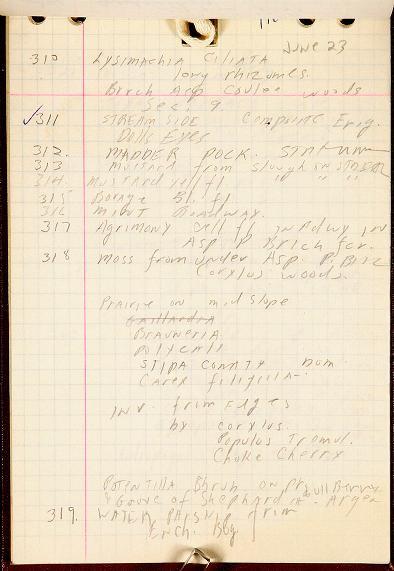 June 23
310 Lysimachia Ciliata
long rhizomes.
Birch Asp Coulee woods
Sec. 9
✓311 STREAM SIDE Composite Erig.
Dolls Eyes
312. MADDER POCK.
313 Mustard from Slough in STREAM
314. Mustard yell fl " " "
315 Borage Bl. fl
316 Mint Roadway.
317 Agrimony yell fl in Rdwy in
Asp P Birch for.
318 Moss from under Asp. P. Bir
Corylus woods.
Prairie on midslope
Gaillardia
Brauneria
Polygala
STIPA COMATA Dom
Carex filifolia
Inv. from Edges
by corylus.
Populus Tremul.
Choke Cherry
Potentilla Shrub on Pr. Bull Berry
Grove of Shephard A. Argen
319. WATER PARSNIP from
Ench. Bg.